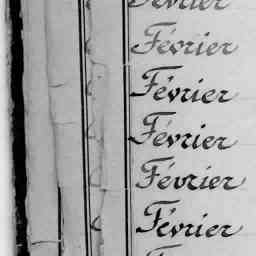 Février
Février
Février
Février
Février
Février